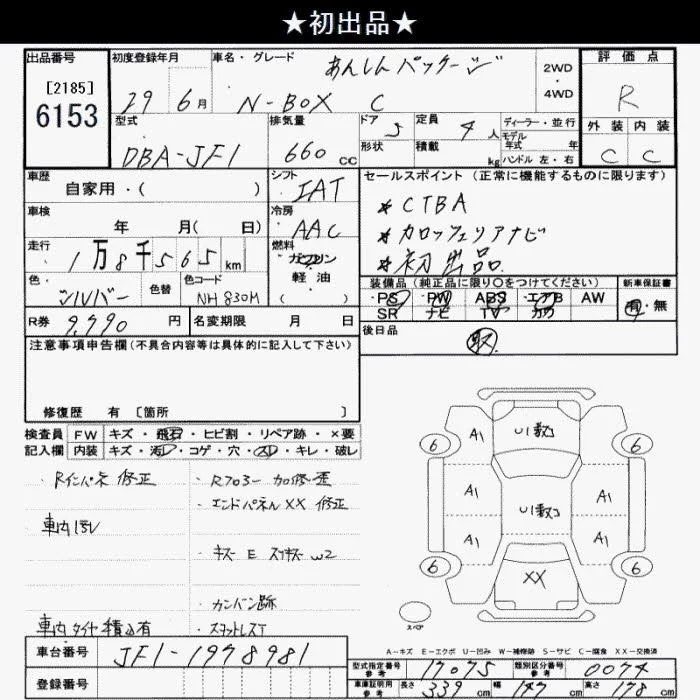 ★初出品★
出品番号
[2185]
6153
初度登録年月
29 6月
車名・グレード
あんしんパッケージ
N-BOX C
2WD
・
4WD
評価点
R
外装 内装
C C
型式
DBA-JF1
排気量
660 cc
ドア 5
形状
定員 4 人
積載 kg
ディーラー・並行
モデル
年式 年
ハンドル 左・右
車歴
自家用・( )
シフト
IAT
セールスポイント (正常に機能するものに限ります)
* CTBA
* カロッツェリアナビ
* 初出品
車検
年 月( 日)
冷房
AAC
走行
1万8千565km
燃料
ガソリン
軽油
( )
色・
シルバー
色替
色コード
NH830M
装備品 (純正品に限り○をつけてください)
PS・PW・ABS・エアB AW
SR ナビ TV カワ
新車保証書
有・無
R券 9,790 円
名変期限 月 日
後日品
取
注意事項申告欄(不具合内容等は具体的に記入して下さい)
修復歴 有 [箇所 ]
検査員 FW キズ・飛石・ヒビ割・リペア跡・×要
記入欄 内装 キズ・汚レ・コゲ・穴・スレ・キレ・破レ
・Rインパネ 修正
・Rフロアー 加修歪
・エンドパネルXX 修正
・車内汚レ
・キズ E スリキズ W2
・カンバン跡
・車内タイヤ積込有
・スタットレスT
A1 U1数コ
6 6
A1 U1数コ A1
A1 A1
6 XX 6
スペア
A-キズ E-エクボ U-凹み W-補修跡 S-サビ C-腐食 XX-交換済
車台番号 JF1-1978981
登録番号
型式指定番号 参考 17075
類別区分番号 参考 0074
車庫証明用 参考 長さ 339 cm 幅 147 cm 高さ 178 cm